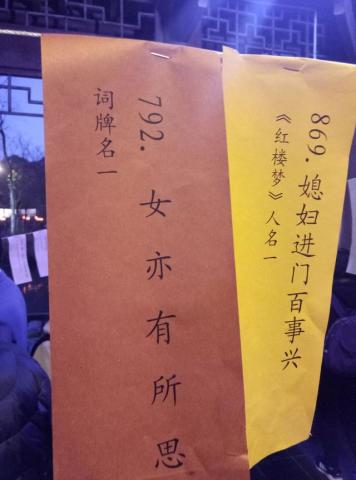 869. 媳妇进门百事兴
《红楼梦》人名一
792. 女亦有所思
词牌名一